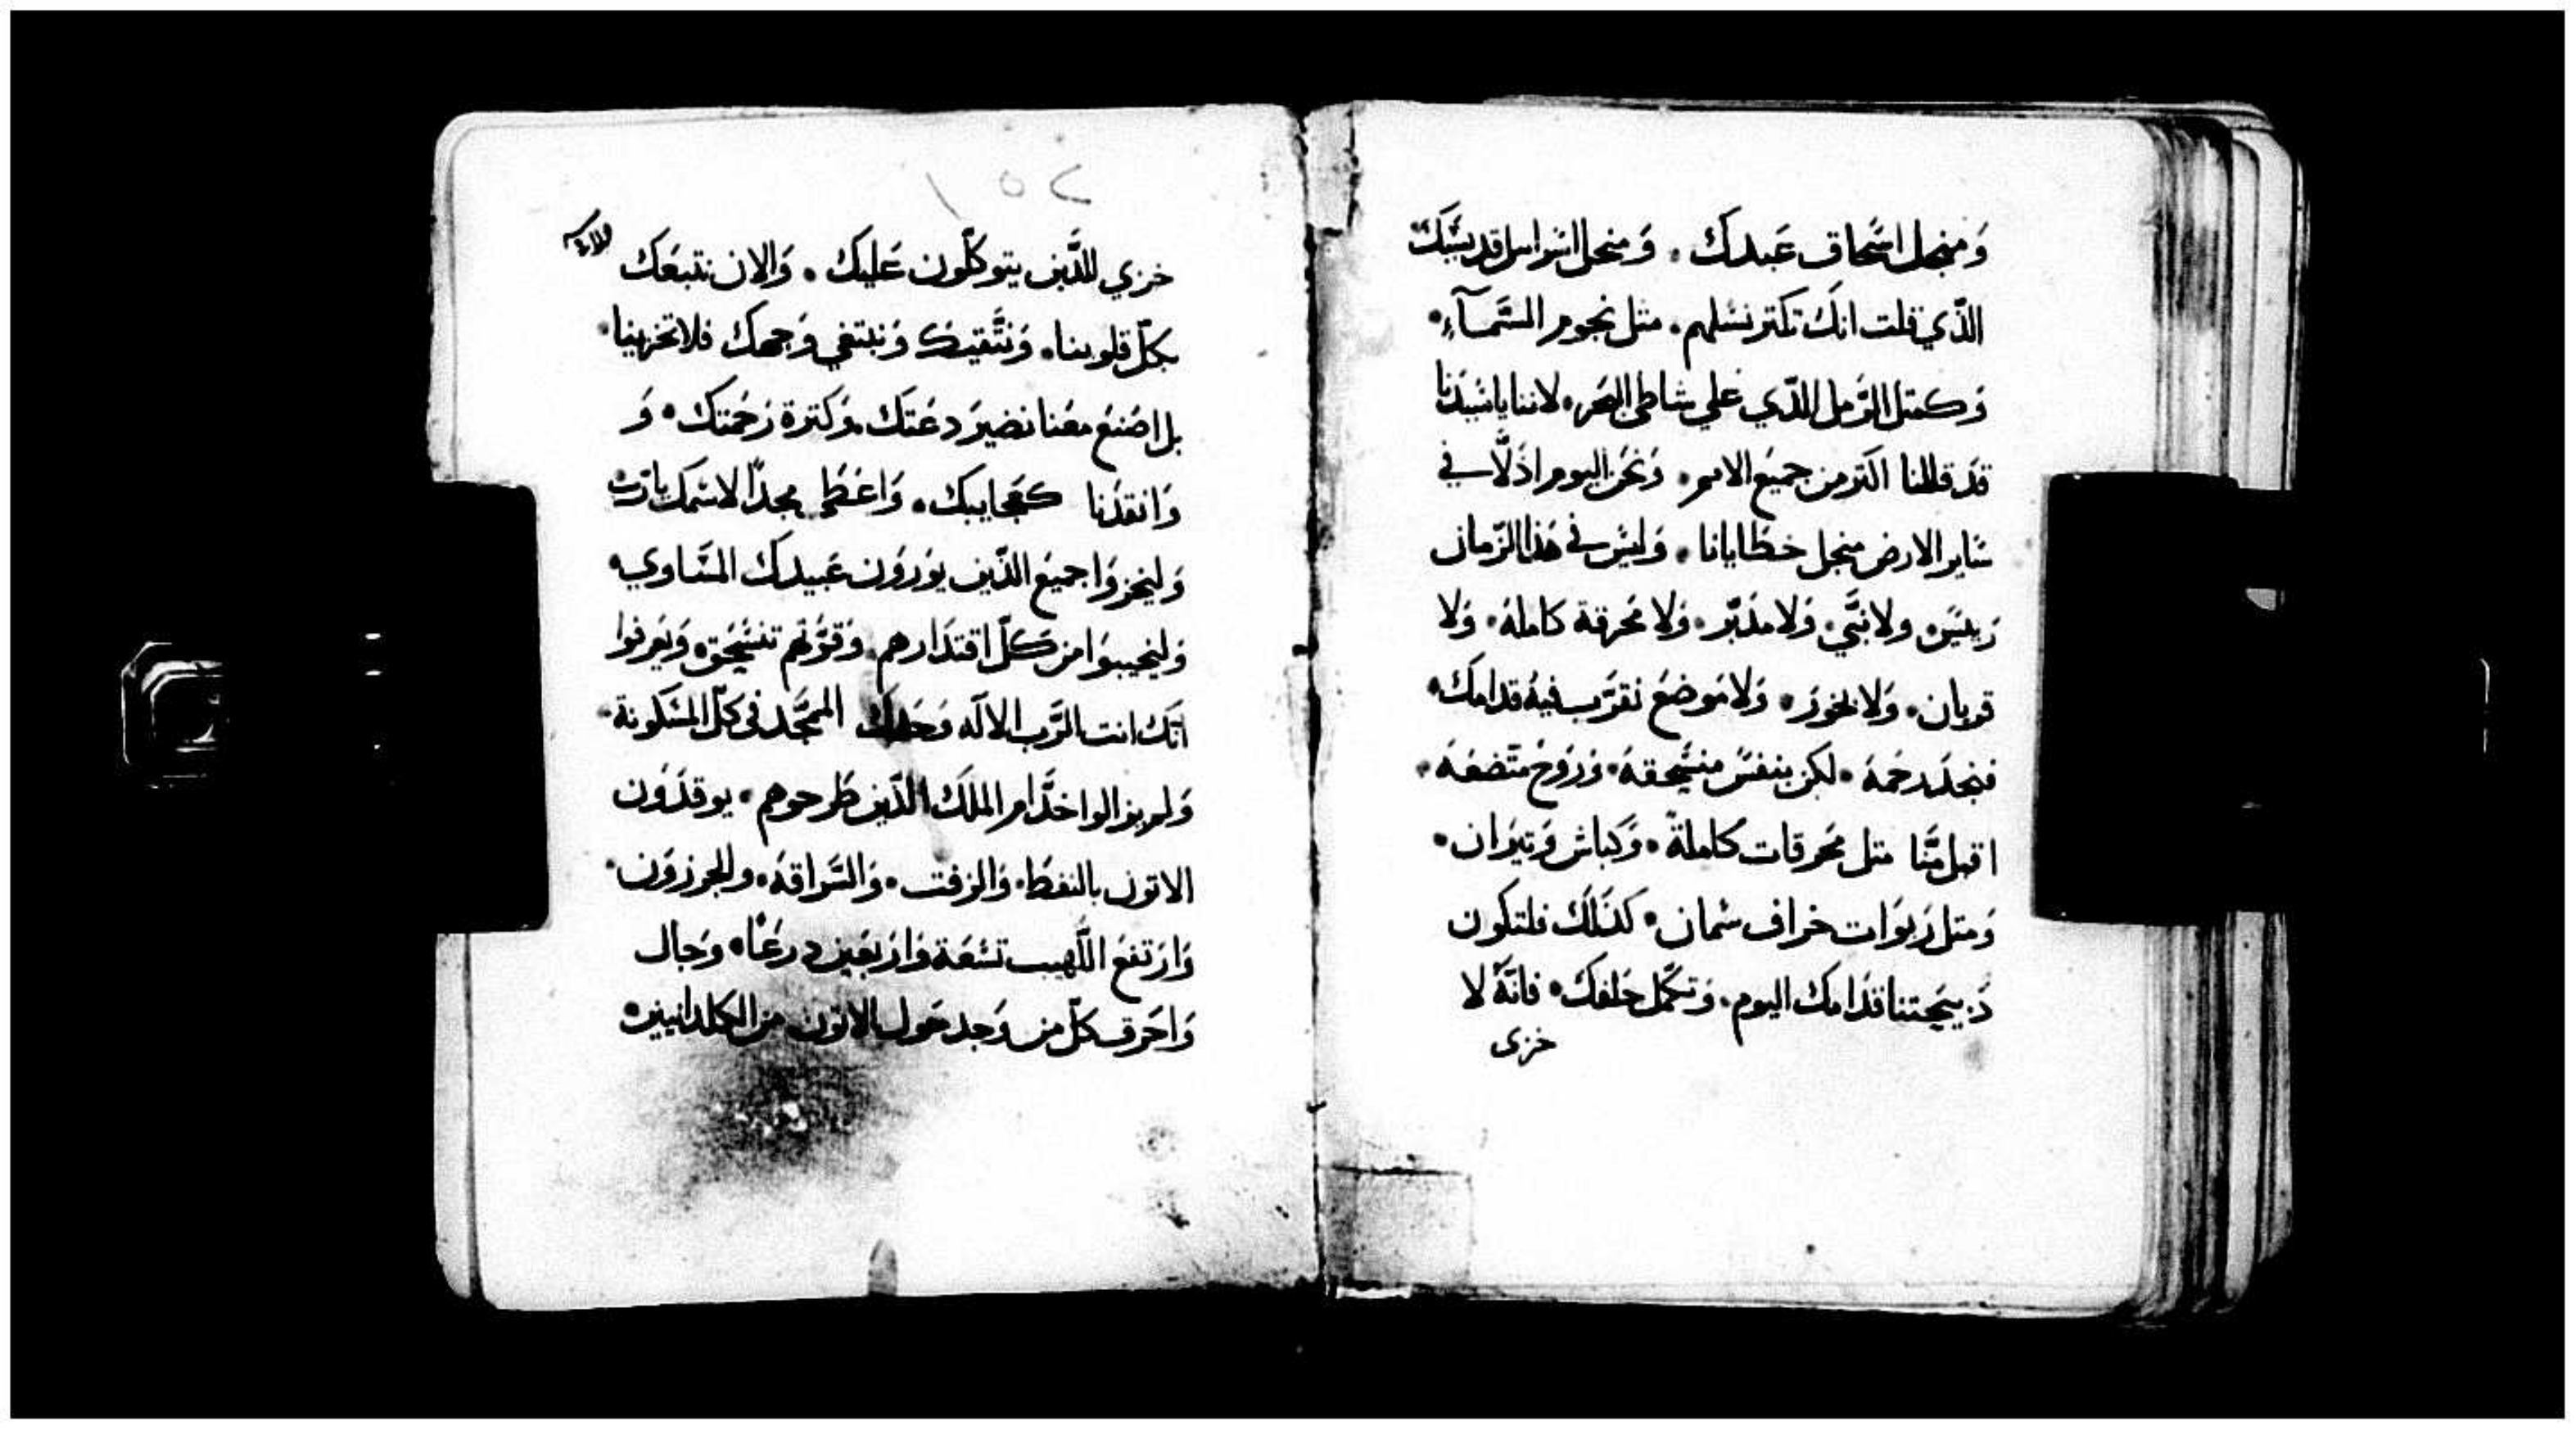 وَمنجل اسَّحاق عَبدكَ . وَمنجل اسَراىىل قديسَّك
الذّي قلت انكَ تكتر نسَلهم . متل نجوم السَّمآءِ .
وَكمتل الرَّمل الذّي علي شاطي البَحر . لاننا ياسَيدَنا
قدَ قللنا اكتر من جميعَ الامم . وَنحَن اليوم اذَلَّا في
سَاير الارض منجل خطَايانا . وَليسَ في هَذا الزّمان
رَييسَ . ولا نبَّي . وَلا مدَبّر . وَلا محَرقة كاملهَ . وَلا
قربان . وَلا بخورَ . وَلا مَوضعَ نقرَّب فيهَ قدامكَ .
فنجدَ رحَمهَ . لكن بنفسَ منسَّحقهَ . وَروَح متّضعَهَ .
اقبل منَّا متل محَرقات كاملةَ . وَكباش وَتيرَان .
وَمتل رَبوَات خراف سَمان . كذَلكَ فلتكون
ذَبيَحتنا قدَامكَ اليوم . وَتكمَّل خلفكَ . فانَّهَ لا
خزى
١٥٢
خزي للذَّين يتوكَّلون عَليكَ . وَالان نتبعَكَ
بكلّ قلوبنا . وَنتَّقيكَ وَنبتغي وَجهكَ فلا تخزينا .
بل اصَنعَ معَنا نضيرَ دعَتكَ . وَكترة رَحَمتكَ . وَ
وَانقذَنا كعَجايبكَ . وَاعَطي مجدَاً لاسَمكَ يارَب
وَليخزوَا جميعَ الذّين يوَروَن عَبيدكَ المسَاوي .
وَليخيبوَا من كلّ اقتدَارهم . وَقوَّتهم تنسَحَق . وَيعَرفوا
انّكَ انت الرَّب الالَه وَحَدكَ الممجَّد في كلّ المسَكونة .
وَلم يزالوا خدَّام الملكَ الذّين طَرحوهم . يوقدَوَن
الاتون بالنفطَ . وَالزفت . وَالسَّراقهَ . والجرزوَن .
وَارَتفعَ اللَّهيب تسَعَة وَارَبعَين درعَاً . وَجال
وَاحَرق كلّ من وَجد حَول الاتون من الكلدانيين .